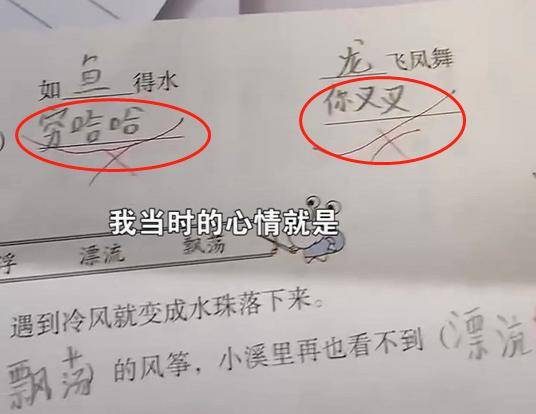 如鱼得水 龙飞凤舞
) 穷哈哈 你叉叉
我当时的心情就是
浮 漂流 飘荡
遇到冷风就变成水珠落下来。
飘荡)的风筝，小溪里再也看不到(漂流